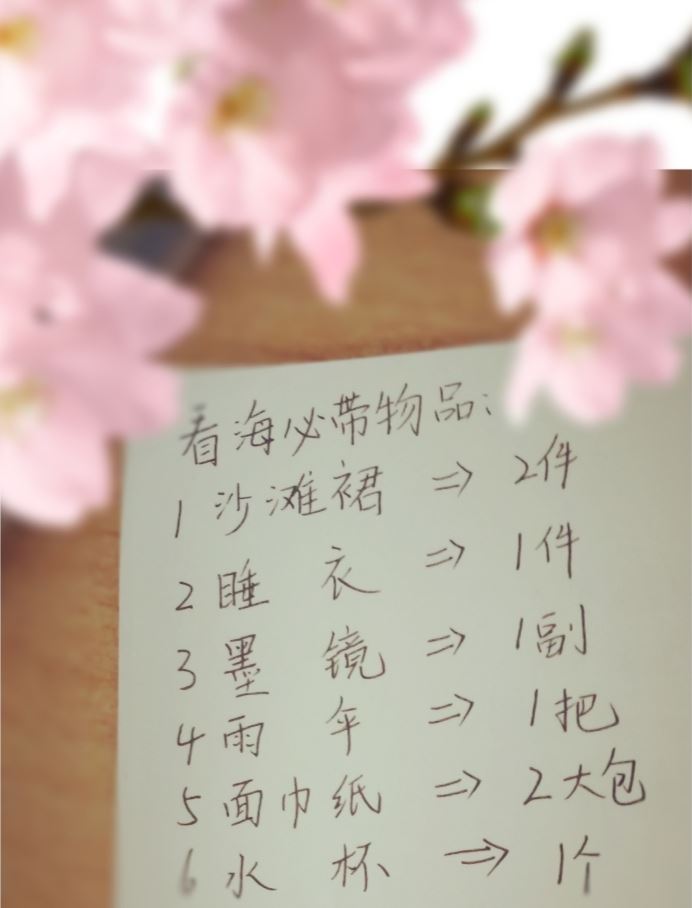 看海必带物品:
1 沙滩裙 ⇒ 2件
2 睡 衣 ⇒ 1件
3 墨 镜 ⇒ 1副
4 雨 伞 ⇒ 1把
5 面巾纸 ⇒ 2大包
6 水 杯 ⇒ 1个